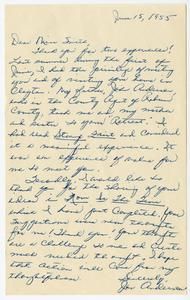 June 15, 1955
Dear Miss Smith,
Thank you for the experience!
Last summer during the first of
June, I had the privilege of meeting
you and of visiting your home in
Clayton. My father, John Anderson,
who is the County Agent of Rabun
County, took me and my mother
and sister to your Retreat. I
had read Strange Fruit and considered
it a meaningful experience. It
was an experience of value for
me to meet you.
Secondly, I would like to
thank you for the sharing of your
ideas in Now Is The Time
which I have just completed. Your
suggestions were very thoughtful
for me! Thank you! Your thoughts
are a challenge to me and create
much needed thought. I hope
that action will come from my
thoughtfulness.
Sincerely,
Anderson